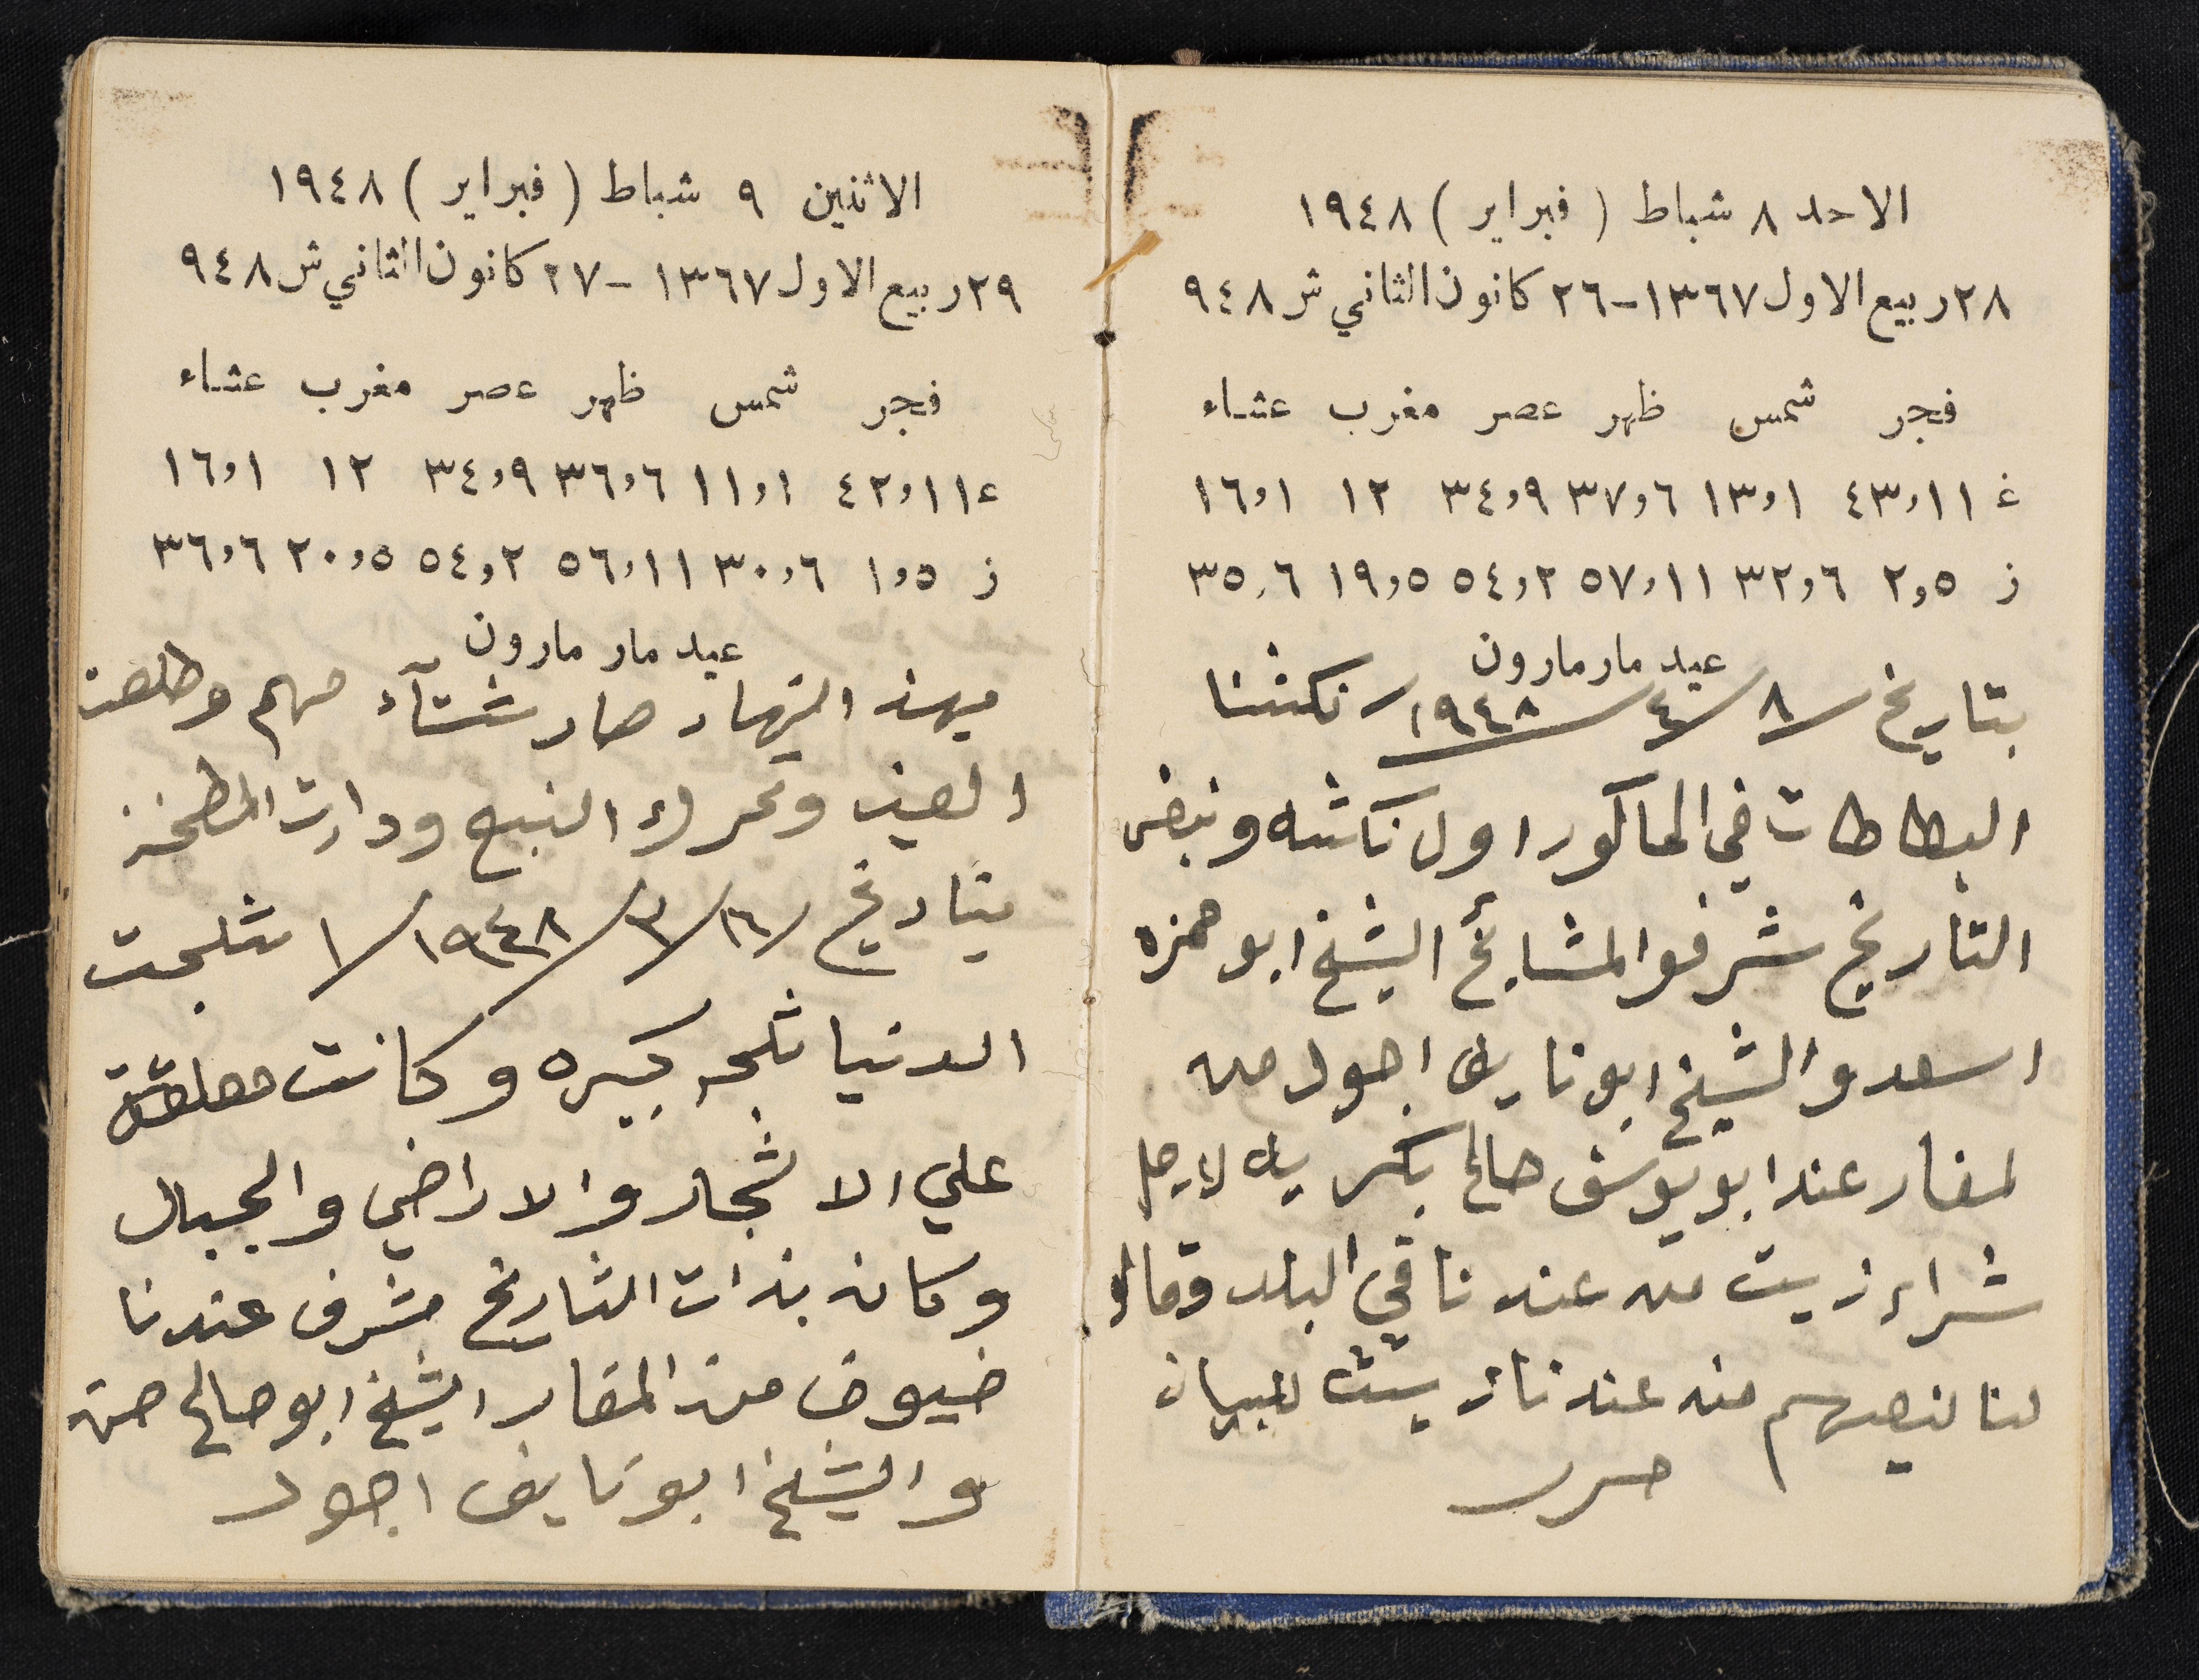 الاحد ٨ شباط ( فبراير ) ١٩٤٨
٢٨ ربيع الاول ١٣٦٧ - ٢٦ كانون الثاني ش ٩٤٨
فجر شمس ظهر عصر مغرب عشاء
غ ٤٣,١١ ١٣,١ ٣٧,٦ ٣٤,٩ ١٢ ١٦,١
ز ٢,٥ ٣٢,٦ ٥٧,١١ ٥٤,٢ ١٩,٥ ٣٥,٦
عيد مار مارون
بتاريخ ٨/٤/١٩٤٨ نكشنا
البطاطات في الحاكور اول نكاشه وبنفس
التاريخ شرفوا المشايخ الشيخ ابو حمزه
اسعد والشيخ ابو نايف اجود من
لمغار عند ابو يوسف صالح بكريه لاجل
شراء زيت من عندنا في البلد وقالو
لنا لنبيعهم منه عندنا زيت للبيان
حرر
الاثنين ٩ شباط ( فبراير ) ١٩٤٨
٢٩ ربيع الاول ١٣٦٧ - ٢٧ كانون الثاني ش ٩٤٨
فجر شمس ظهر عصر مغرب عشاء
غ ٤٢,١١ ١١,١ ٣٦,٦ ٣٤,٩ ١٢ ١٦,١
ز ١,٥ ٣٠,٦ ٥٦,١١ ٥٤,٢ ٢٠,٥ ٣٦,٦
عيد مار مارون
بهذ النهار صار شتآء مهم وطلعت
العين وتحرك النبع ودارت المطحنه
بتاريخ ١٦/٣/١٩٤٨ ثلجت
الدنيا ثلجه كبيره وكانت معلقة
علي الاشجار والاراضي والجبال
وكان بذات التاريخ مشرف عندنا
ضيوف من المغار الشيخ ابو صالح
والشيخ ابو نايف اجود